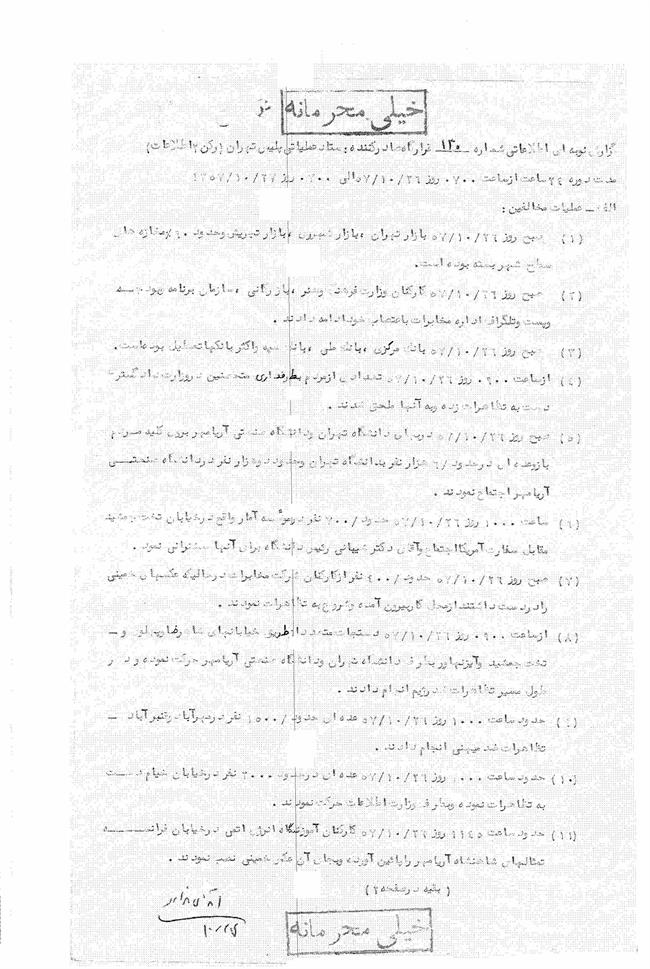 خیلی محرمانه
گزارش نوبه ای اطلاعاتی شماره ۱۳۰ قرارگاه صادرکننده : ستاد عملیاتی پلیس تهران (رکن ۲ اطلاعات)
مدت دوره ۲۴ ساعت از ساعت ۰۷۰۰ روز ۵۷/۱۰/۲۶ الی ۰۷۰۰ روز ۱۳۵۷/۱۰/۲۷
الف ـ عملیات مخالفین :
(۱) صبح روز ۵۷/۱۰/۲۶ بازار تهران ، بازار ، بازار تجریش وحدود مغازه های
سطح شهر بسته بوده است.
(۲) صبح روز ۵۷/۱۰/۲۶ کارکنان وزارت فرهنگ وهنر ، بازرگانی ، سازمان برنامه وبودجه
وپست وتلگراف اداره مخابرات باعتصاب خودادامه دادند .
(۳) صبح روز ۵۷/۱۰/۲۶ بانک مرکزی ، بانک ملی ، بانک سپه واکثر بانکها تعطیل بوده است.
(۴) ازساعت ۰۹۰۰ روز ۵۷/۱۰/۲۶ تعدادی ازمردم بطرفداری متحصنین دروزارت دادگستری
دست به تظاهرات زده وبه آنها ملحق شدند .
(۵) صبح روز ۵۷/۱۰/۲۶ دربهای دانشگاه تهران ودانشگاه صنعتی آریامهر بروی کلیه مردم
بازوعده ای درحدود هزار نفر بدانشگاه تهران وحدود دوهزار نفر دردانشگاه صنعتی
آریامهر اجتماع نمودند .
(۶) ساعت ۱۰۰۰ روز ۵۷/۱۰/۲۶ حدود نفر درموسسه آمار واقع درخیابان تخت جمشید
مقابل سفارت آمریکا اجتماع وآقای دکتر شیبانی رئیس دانشگاه برای آنها سخنرانی نمود .
(۷) صبح روز ۵۷/۱۰/۲۶ حدود ۴۰۰ نفر ازکارکنان شرکت مخابرات درحالیکه عکسهای خمینی
رادردست داشتند ازمحل کاربیرون آمده وشروع به تظاهرات نمودند .
(۸) ازساعت ۰۹۰۰ روز ۵۷/۱۰/۲۶ دستجات متعدد ازطریق خیابانهای شاهرضا وپهلوی و ـ
تخت جمشید وآیزنهاور بطرف دانشگاه تهران ودانشگاه صنعتی آریامهر حرکت نموده و در
طول مسیر تظاهرات ضد رژیم انجام دادند .
(۹) حدود ساعت ۱۰۰۰ روز ۵۷/۱۰/۲۶ عده ای حدود ۱۵۰۰ نفر درمهرآباد وقنبرآباد ـ
تظاهرات ضد میهنی انجام دادند .
(۱۰) حدود ساعت روز ۵۷/۱۰/۲۶ عده ای درحدود ۳۰۰۰ نفر درخیابان خیام دست
به تظاهرات نموده وبطرف وزارت اطلاعات حرکت نمودند .
(۱۱) حدود ساعت ۱۱۴۵ روز ۵۷/۱۰/۲۶ کارکنان آموزشگاه انرژی اتمی درخیابان فرانسه
تمثالهای شاهنشاه آریامهر راپائین آورده وبجای آن عکس خمینی نصب نمودند .
( بقیه درصفحه ۲ )
خیلی محرمانه